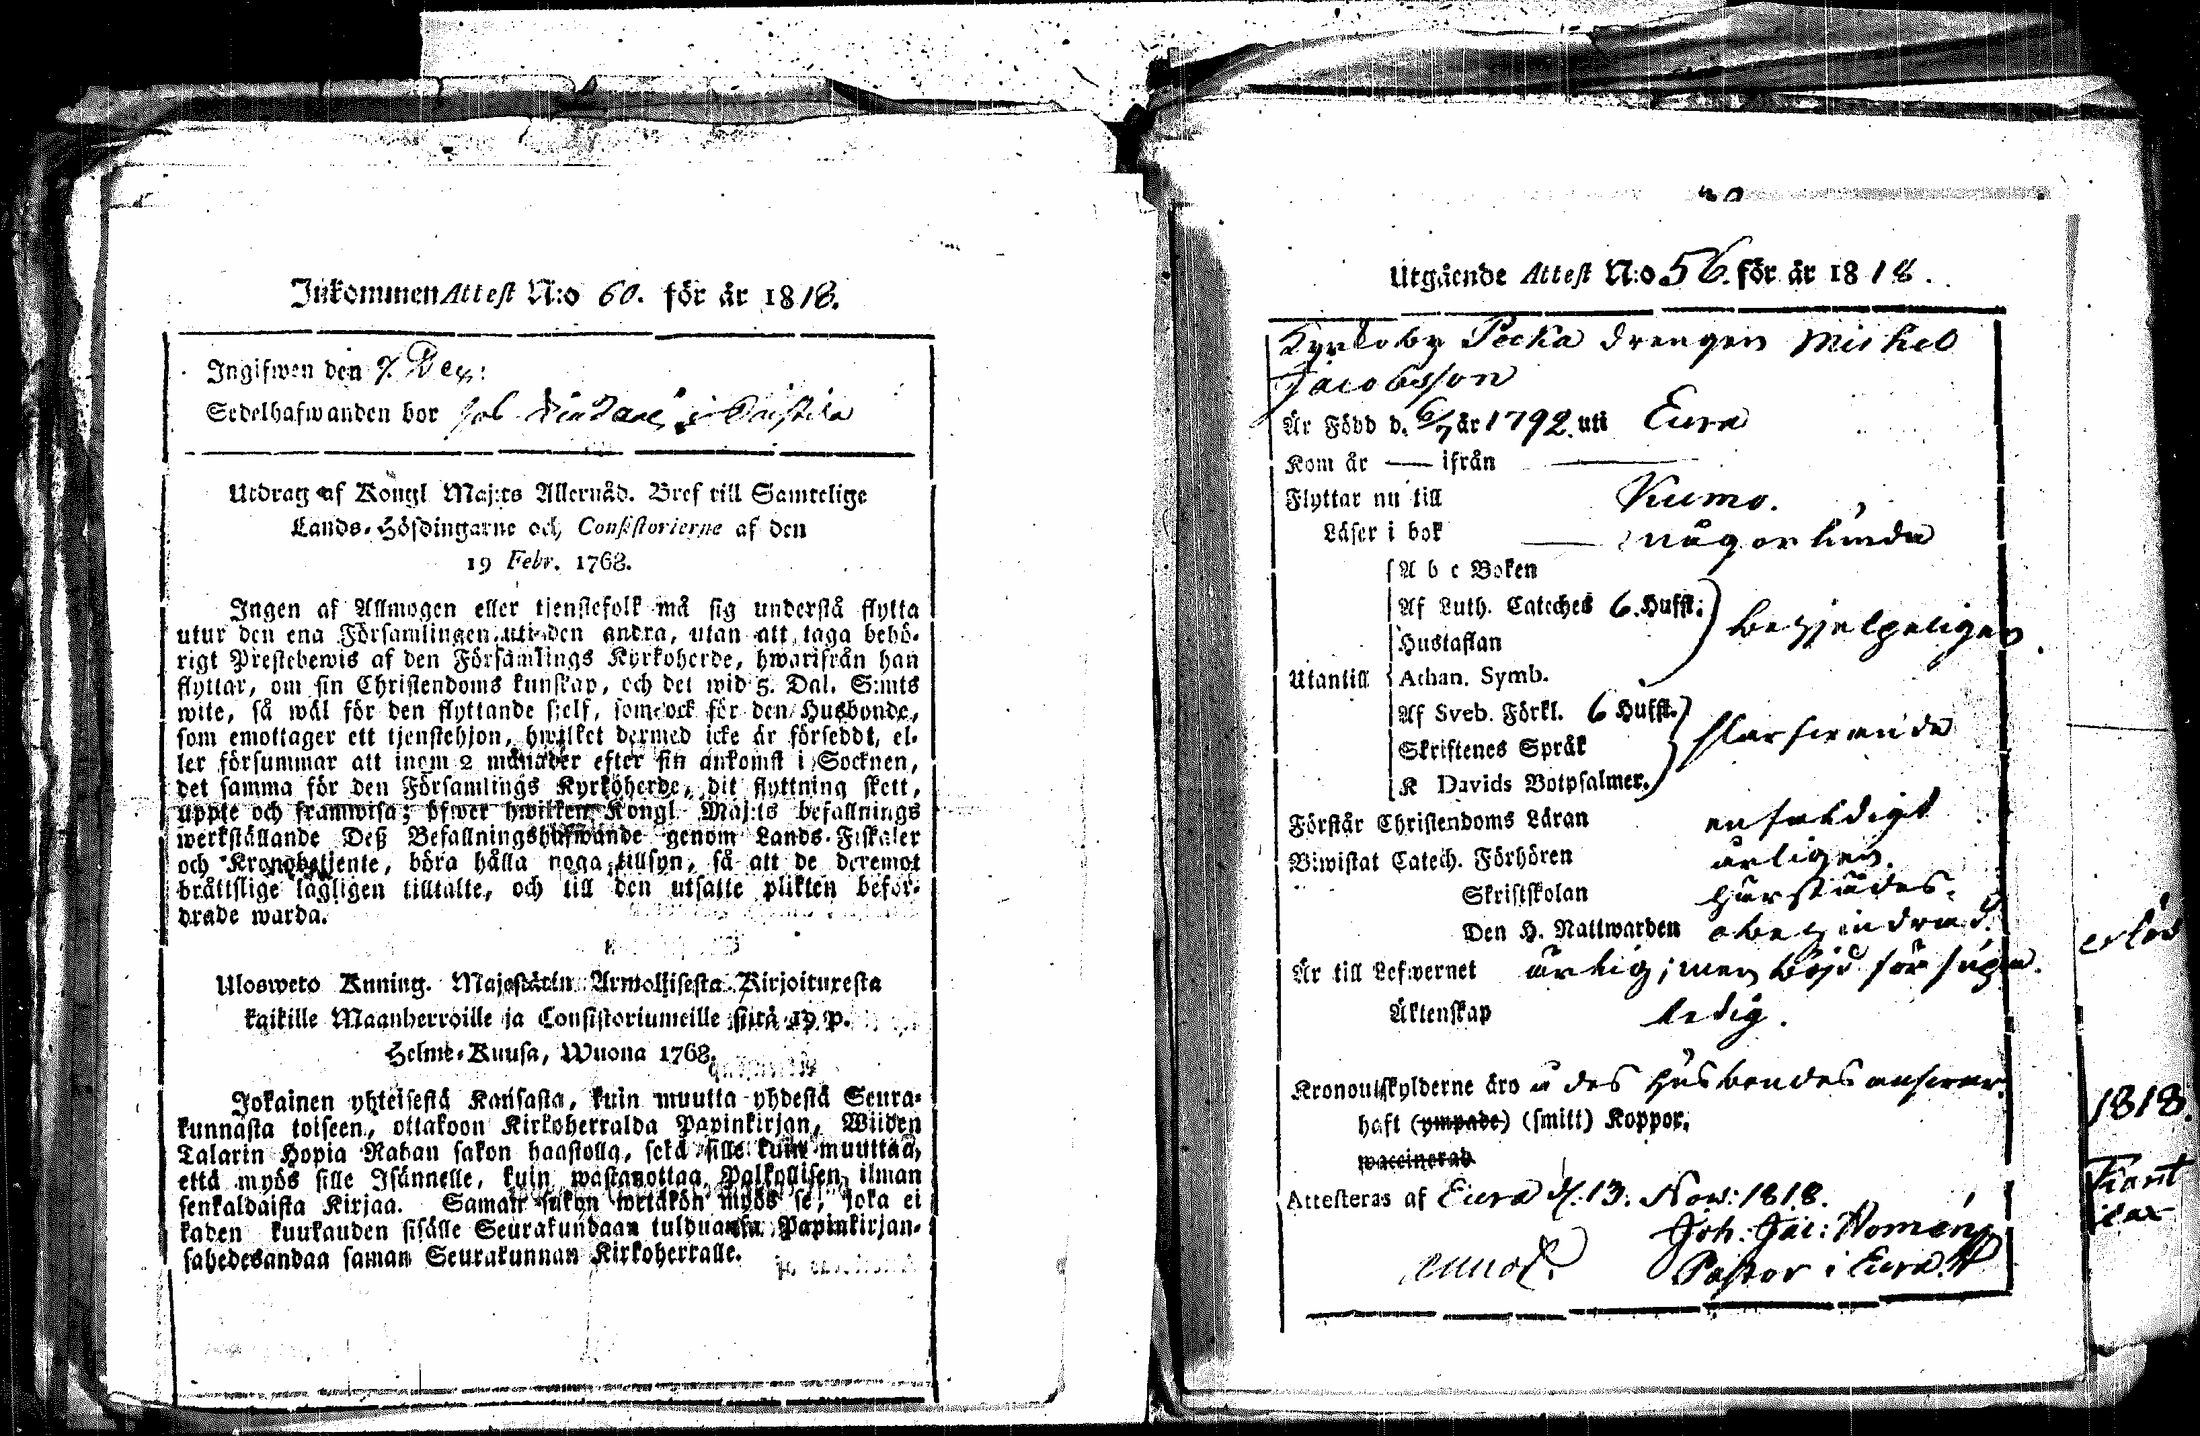 Inkommen Attest N:o 60. för år 1818.
Ingifwen den 7. Dec:
Sedelhafwanden bor hos i
Utdrag af Kongl Maj:ts Allernåd. Bref till Samtelige
Lands-Höfdingarne och Consistorierne af den
19 Febr. 1768.
Ingen af Allmogen eller tjenstefolk må sig understå flytta
utur den ena Församlingen uti den andra, utan att taga behö-
rigt Prestebewis af den Församlings Kyrkoherde, hwarifrån han
flyttar, om sin Christendoms kunskap, och det wid 5. Dal. S:mts
wite, så wäl för den flyttande sjelf, som ock för den Husbonde,
som emottager ett tjenstehjon, hwilket dermed icke är försedt, el-
ler försummar att inom 2 månader efter sin ankomst i Socknen,
det samma för den Församlings Kyrkoherde, dit flyttning skett,
uppte och framwisa; öfwer hwilken Kongl Maj:ts befallnings
werkställande Deß Befallningshafwande genom Lands-Fiskaler
och Kronobetjente, böra hålla noga tillsyn, så att de deremot
bråttslige lagligen tilltalte, och till den utsatte plikten befor-
drade warda.
Ulosweto Kuning. Majestätin Armollisesta Kirjoituxesta
kaikille Maanherroille ja Consistoriumeille siitä 19 p.
Helme-Kuusa, Wuona 1768.
Jokainen yhteisestä Kansasta, kuin muutta yhdestä Seura-
kunnasta toiseen, ottakoon Kirkoherralda Papinkirjan, Wiiden
Talarin Hopia Rahan sakon haastolla, sekä sille kuin muuttaa,
että myös sille Isännelle, kuin wastanottaa Palkollisen ilman
senkaldaista Kirjaa. Saman sakon wetäkön myös se, joka ei
kaden kuukauden sisälle Seurakundaan tulduansa Papinkirjan-
sahedesandaa saman Seurakunnan Kirkoherralle.
Utgående Attest N:o 56. för år 1818.
Kyrkoby Pocka drengen Michel
Jacobsson
Är Född d. 6/7 år 1792. uti Eura
Kom år — ifrån —
Flyttar nu till Kumo.
Läser i bok — någorlunda
A b c Boken
Af Luth. Cateches 6. Hufst:
Hustaflan
Utantill Athan. Symb.
behjelpeligen
Af Sveb. Förkl. 6 Hufst.
Skriftenes Språk
K Davids Botpsalmer.
Förstår Christendoms Läran enfaldigt
Biwistat Catech. Förhören årligen.
Skriftskolan härstädes.
Den H. Nattwarden obehindrad.
Är till Lefwernet ärlig; men böjd för
Äktenskap ledig.
Kronoutskylderne äro å des husbondes answar.
haft (ympade) (smitt) Koppor.
waccinerad
Attesteras af Eura d. 13. Nov: 1818.
Joh: Jac: Noménp
Pastor i Eura.
1818.